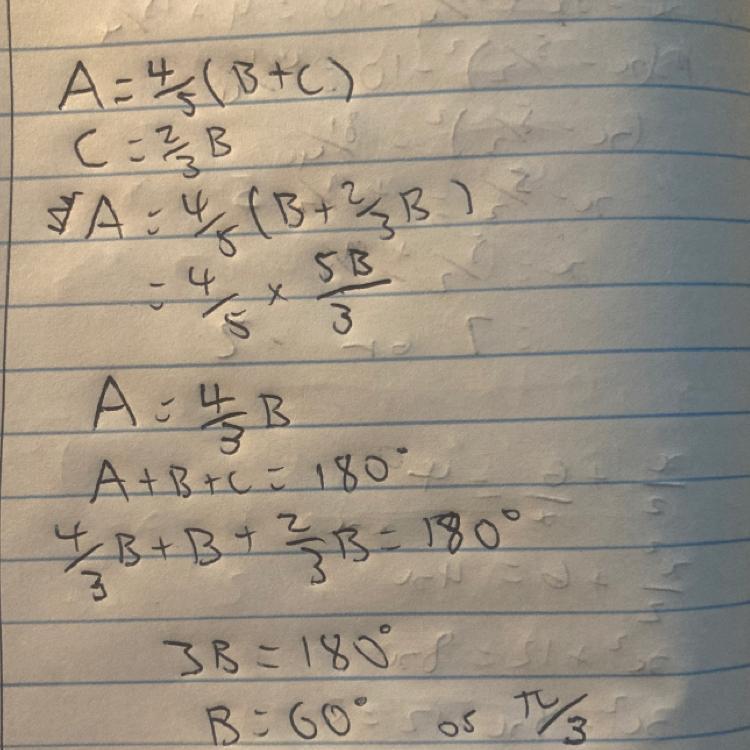 A = 4/5 (B + C)
C = 2/3 B
A = 4/5 (B + 2/3 B)
= 4/5 × 5B/3
A = 4/3 B
A + B + C = 180°
4/3 B + B + 2/3 B = 180°
3B = 180°
B = 60° or π/3